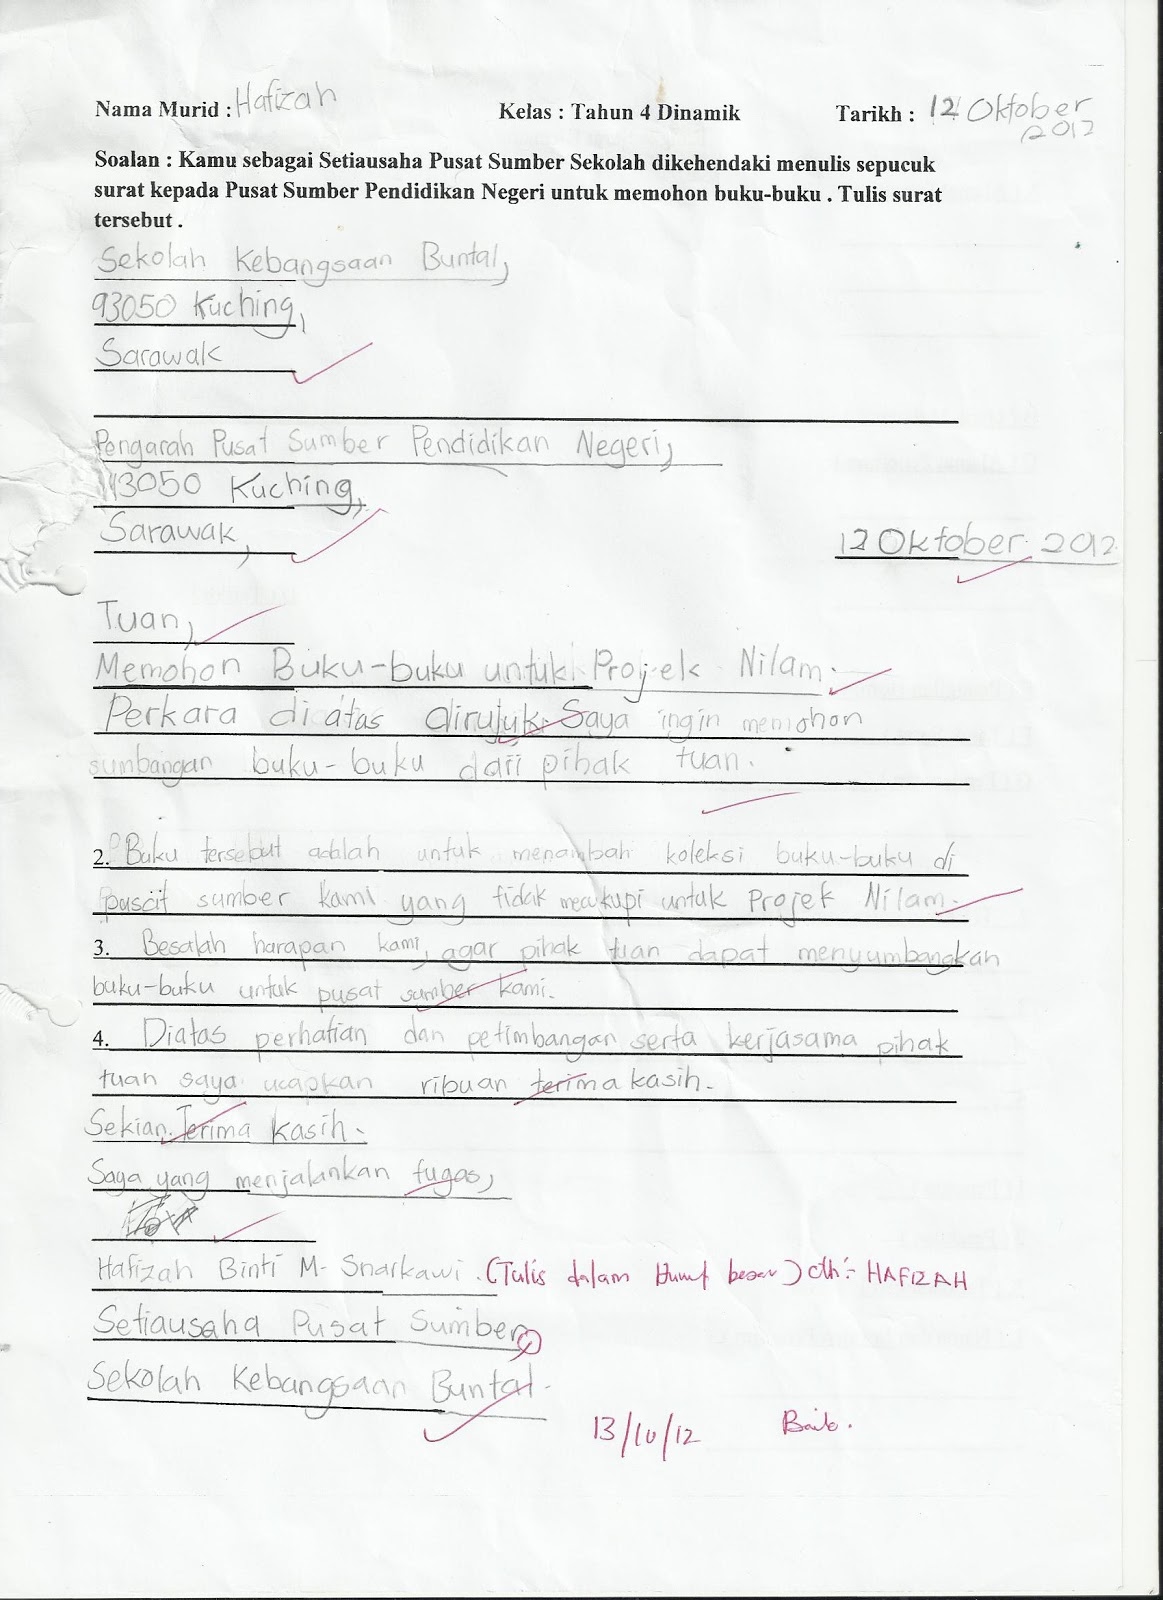 Nama Murid : Hafizah Kelas : Tahun 4 Dinamik Tarikh : 12 Oktober 2012
Soalan : Kamu sebagai Setiausaha Pusat Sumber Sekolah dikehendaki menulis sepucuk
surat kepada Pusat Sumber Pendidikan Negeri untuk memohon buku-buku . Tulis surat
tersebut .
Sekolah Kebangsaan Buntal,
93050 Kuching,
Sarawak
Pengarah Pusat Sumber Pendidikan Negeri,
93050 Kuching,
Sarawak,
12 Oktober 2012.
Tuan,
Memohon Buku-buku untuk Projek Nilam.
Perkara di atas dirujuk. Saya ingin memohon
sumbangan buku-buku dari pihak tuan.
2. Buku tersebut adalah untuk menambah koleksi buku-buku di
pusat sumber kami yang tidak mencukupi untuk Projek Nilam.
3. Besalah harapan kami, agar pihak tuan dapat menyumbangkan
buku-buku untuk pusat sumber kami.
4. Diatas perhatian dan petimbangan serta kerjasama pihak
tuan saya ucapkan ribuan terima kasih.
Sekian. Terima kasih.
Saya yang menjalankan tugas,
Hafizah Binti M. Snarkawi. (Tulis dalam Huruf besar) cth:- HAFIZAH
Setiausaha Pusat Sumber,
Sekolah Kebangsaan Buntal.
13/10/12 Baik.